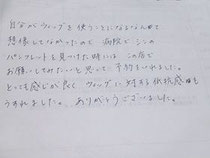 自分がウィッグを使うことになるなんて
想像してなかったので 病院で この
パンフレットを見つけた時には この店で
お願いしてみたいと思って、予約をいれました。
とっても感じが良く ウィッグに対する抵抗感も
うすれました。 ありがとうございました。